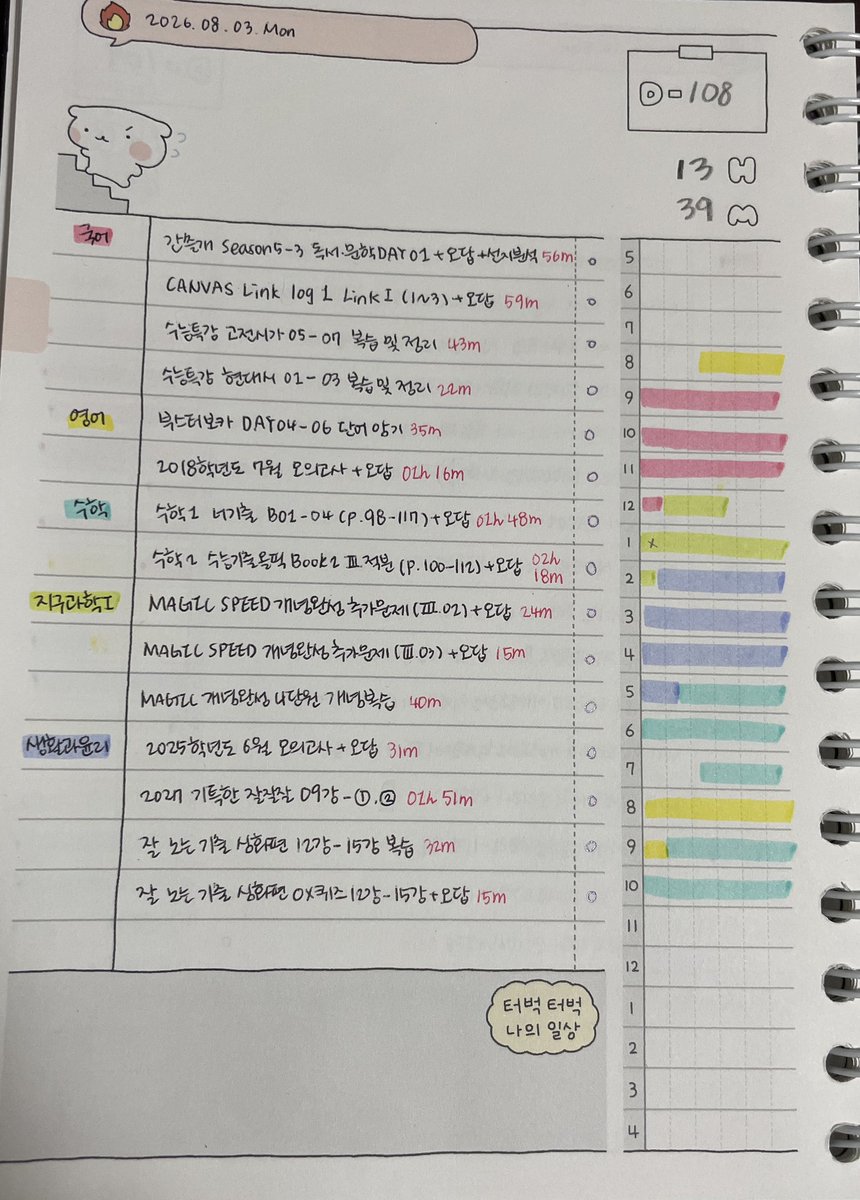 2026.08.03.Mon
D-108
13 H
39 M
국어
간쓸개 Season5-3 독서.문학DAY01+오답+선지분석 56m
CANVAS Link log 1 Link I (1~3)+오답 59m
수능특강 고전시가 05-07 복습 및 정리 43m
수능특강 현대시 01-03 복습 및 정리 22m
영어
부스터보카 DAY04-06 단어 암기 35m
2018학년도 7월 모의고사+오답 01h 16m
수학
수학1 너기출 B01-04 (p.98-117)+오답 01h 48m
수학2 수능기출올픽 Book2 Ⅲ.적분 (p.100-112)+오답 02h 18m
지구과학I
MAGIC SPEED 개념완성 추가문제 (Ⅲ.02)+오답 24m
MAGIC SPEED 개념완성 추가문제 (Ⅲ.03)+오답 15m
MAGIC 개념완성 4단원 개념복습 40m
생활과윤리
2025학년도 6월 모의고사+오답 31m
2027 기특한 잘잘잘 09강-①.② 01h 51m
잘 노는 기출 심화편 12강-15강 복습 32m
잘 노는 기출 심화편 OX퀴즈 12강-15강+오답 15m
5
6
7
8
9
10
11
12
1
2
3
4
5
6
7
8
9
10
11
12
1
2
3
4
터벅 터벅
나의 일상